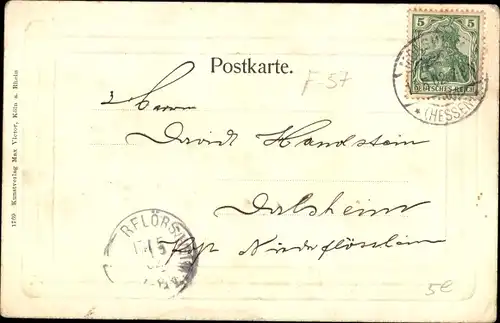 5
DEUTSCHES REICH
(HESSEN)
Postkarte.
F-57
Herrn
David Handstein
Dalsheim
RFLÖRSHEIM
15/5
5E
1769 Kunstverlag Max Vicner, Köln a. Rhein